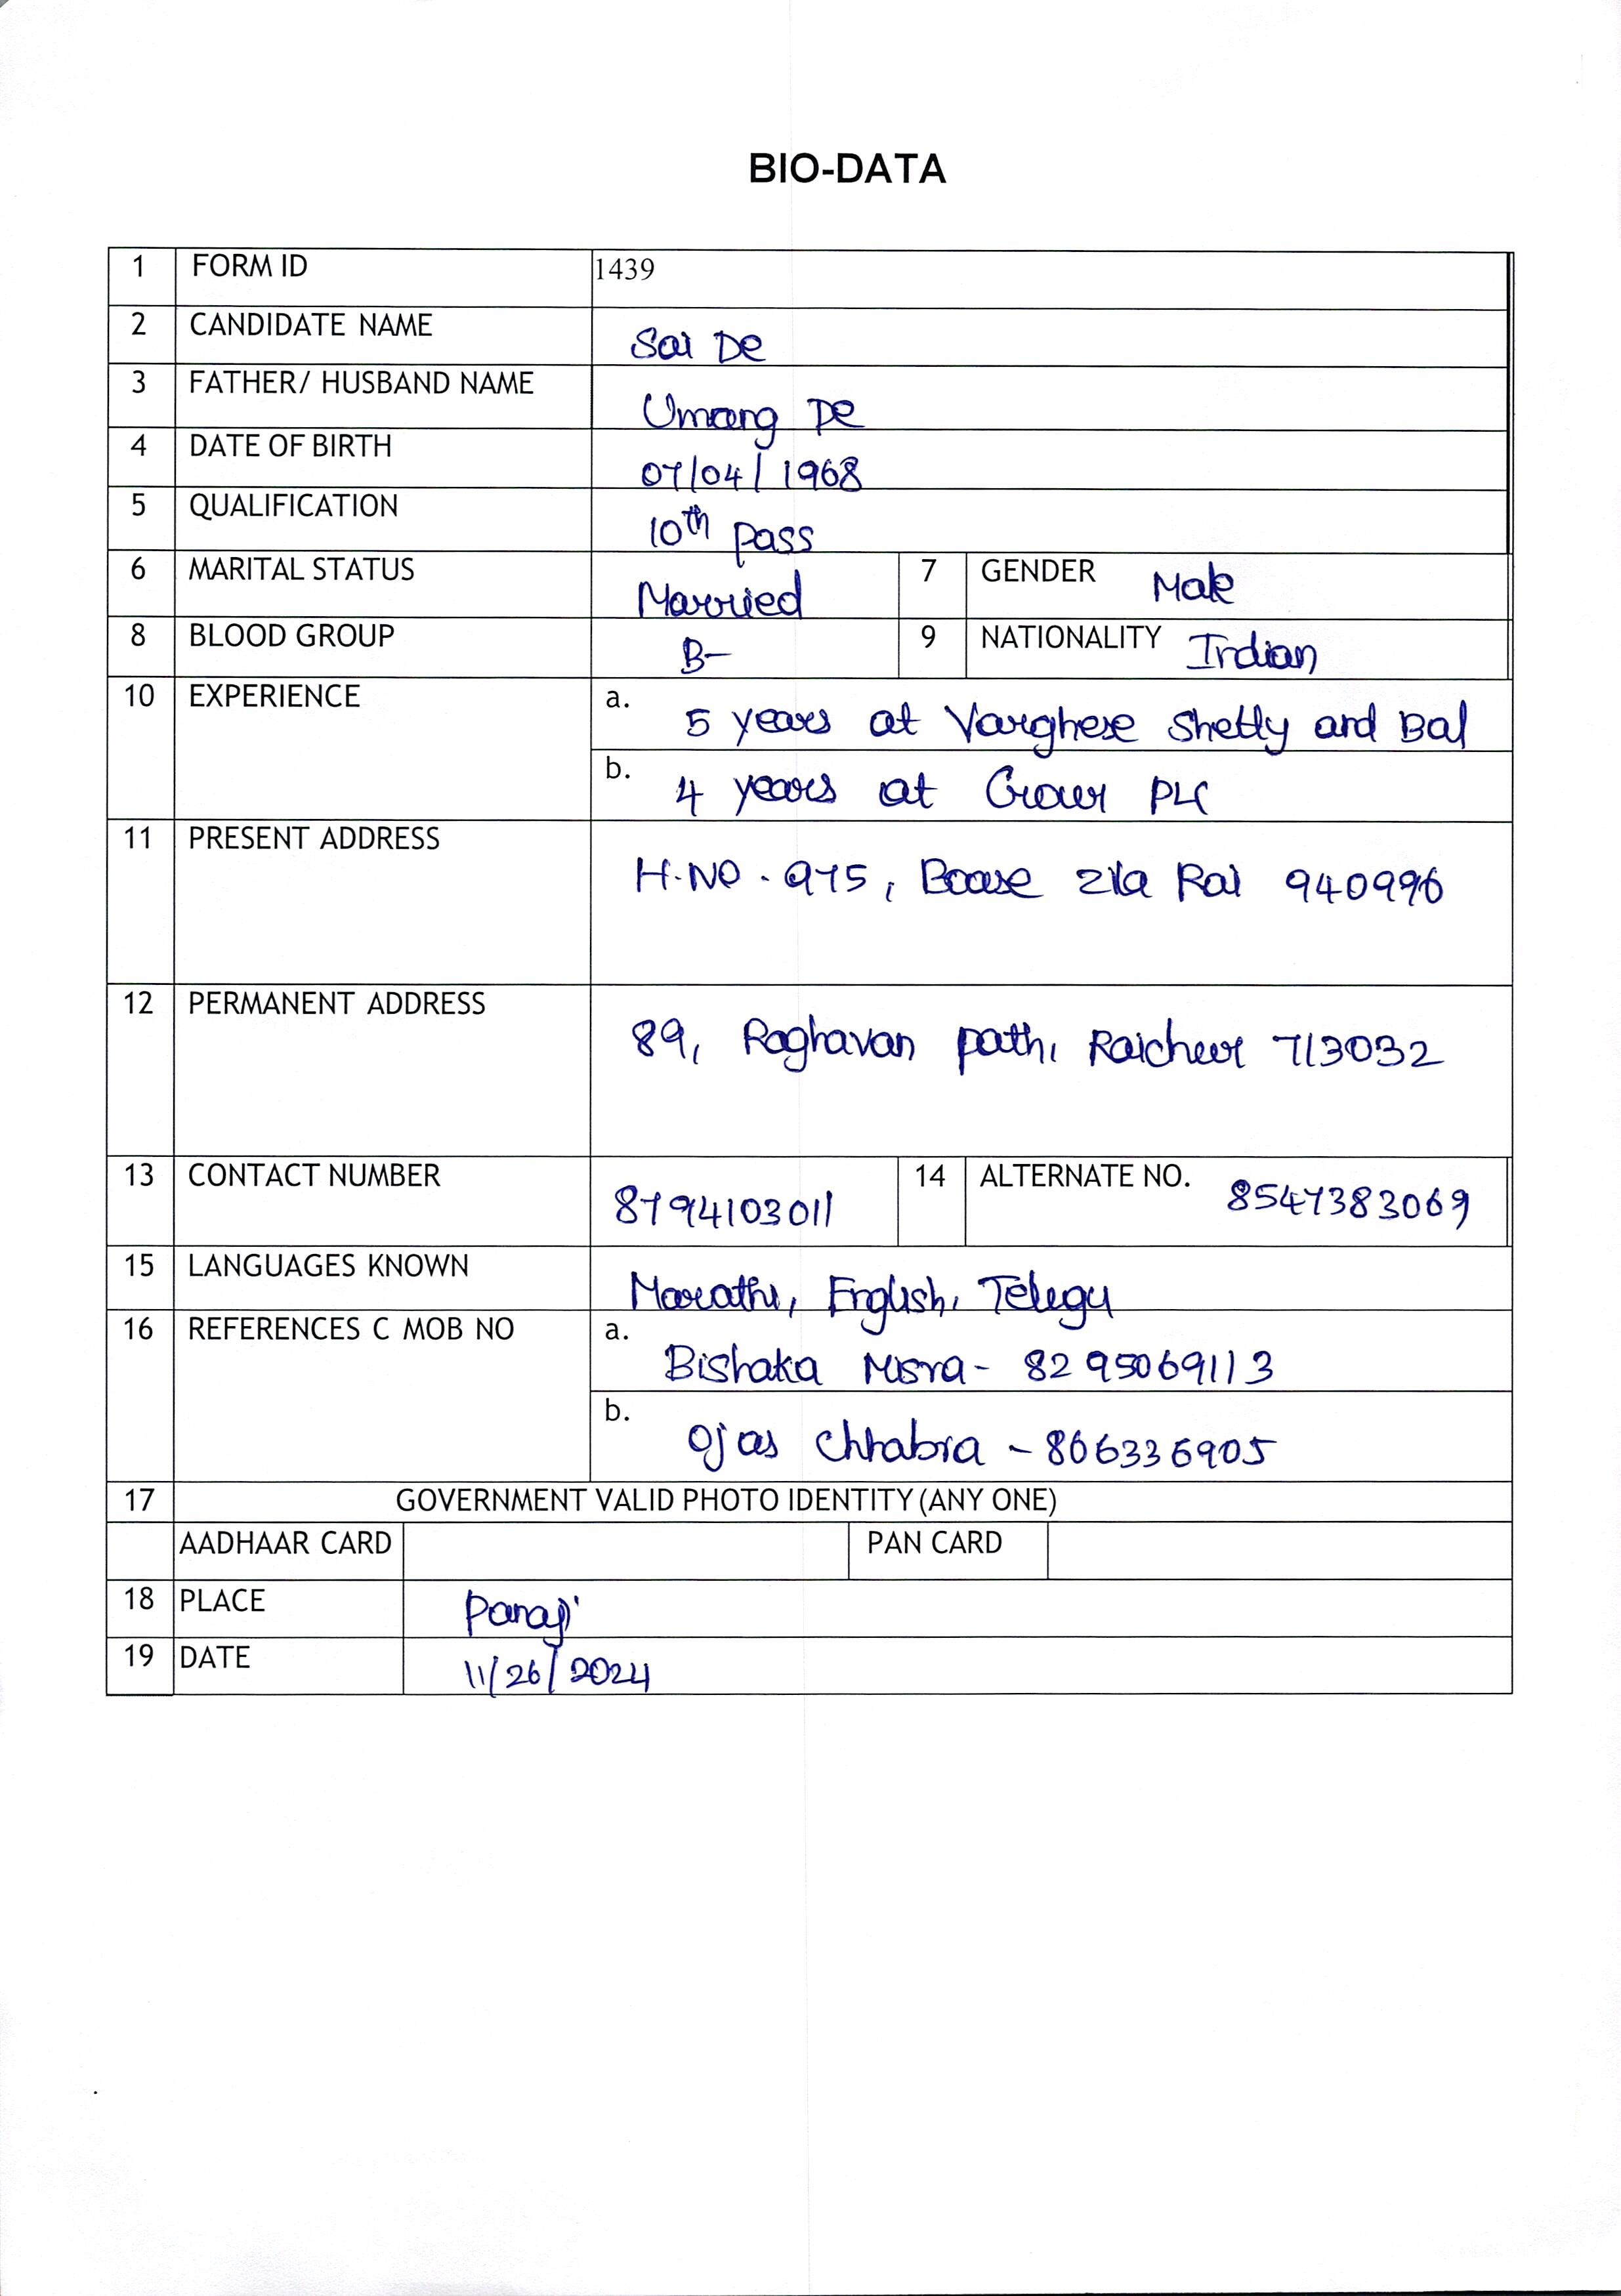 BIO-DATA
1 FORM ID 1439
2 CANDIDATE NAME Sai De
3 FATHER/ HUSBAND NAME Umang De
4 DATE OF BIRTH 07/04/1968
5 QUALIFICATION 10th pass
6 MARITAL STATUS Married 7 GENDER Male
8 BLOOD GROUP B- 9 NATIONALITY Indian
10 EXPERIENCE a. 5 years at Varghese Shetty and Bal
b. 4 years at Gour PLC
11 PRESENT ADDRESS H.NO. 975, Boase Zila Rai 940996
12 PERMANENT ADDRESS 89, Raghavan path, Raichur 713032
13 CONTACT NUMBER 8794103011 14 ALTERNATE NO. 8547383069
15 LANGUAGES KNOWN Marathi, English, Telegu
16 REFERENCES C MOB NO a. Bishaka Misra - 8295069113
b. Ojas Chhabra - 806336905
17 GOVERNMENT VALID PHOTO IDENTITY (ANY ONE)
AADHAAR CARD PAN CARD
18 PLACE Panaji
19 DATE 11/26/2024